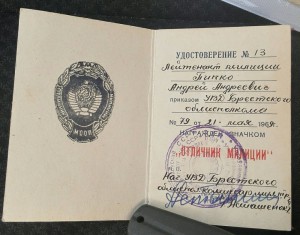 УДОСТОВЕРЕНИЕ № 13
Лейтенант милиции
Пипко
Андрей Андреевич
приказом УВД Брестского
облисполкома
№ 79 от 21 мая 1969г.
НАГРАЖДЕН ЗНАЧКОМ
"ОТЛИЧНИК МИЛИЦИИ"
М. П.
Нач. УВД Брестского
МООП